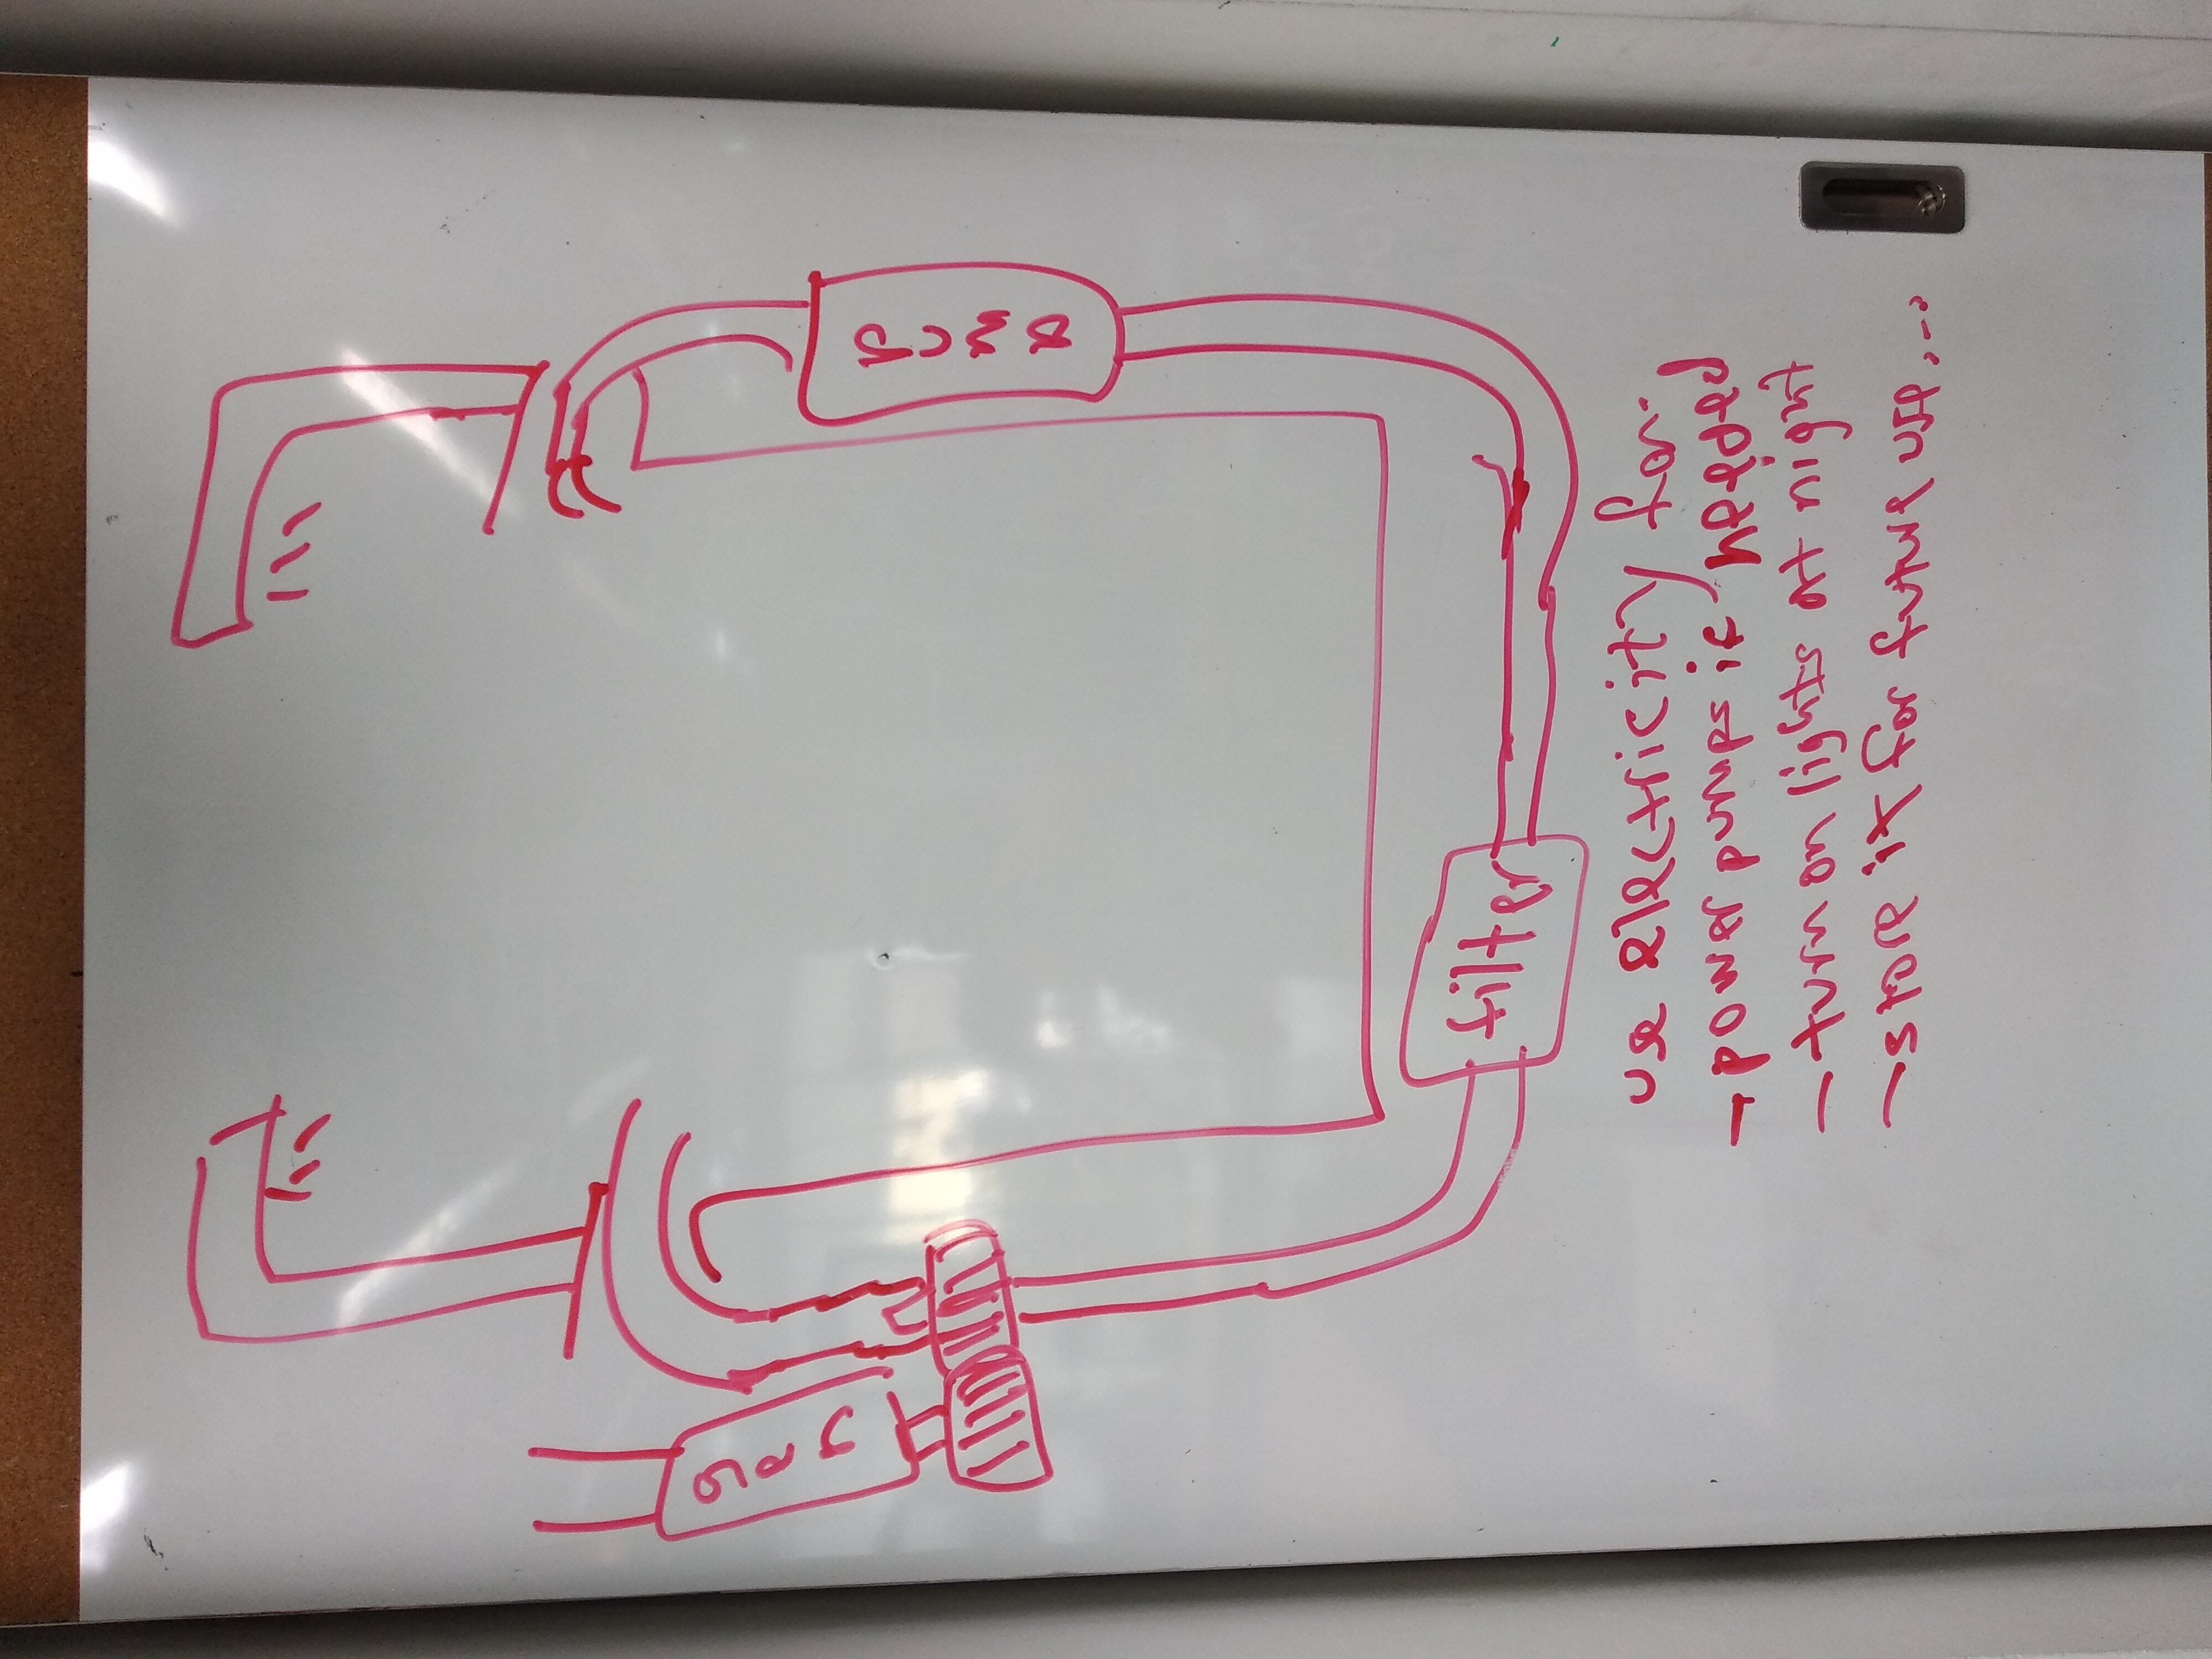 Gen
Pump
filter
use electricity for
- power pumps if needed
- turn on lights at night
- store it for future use...